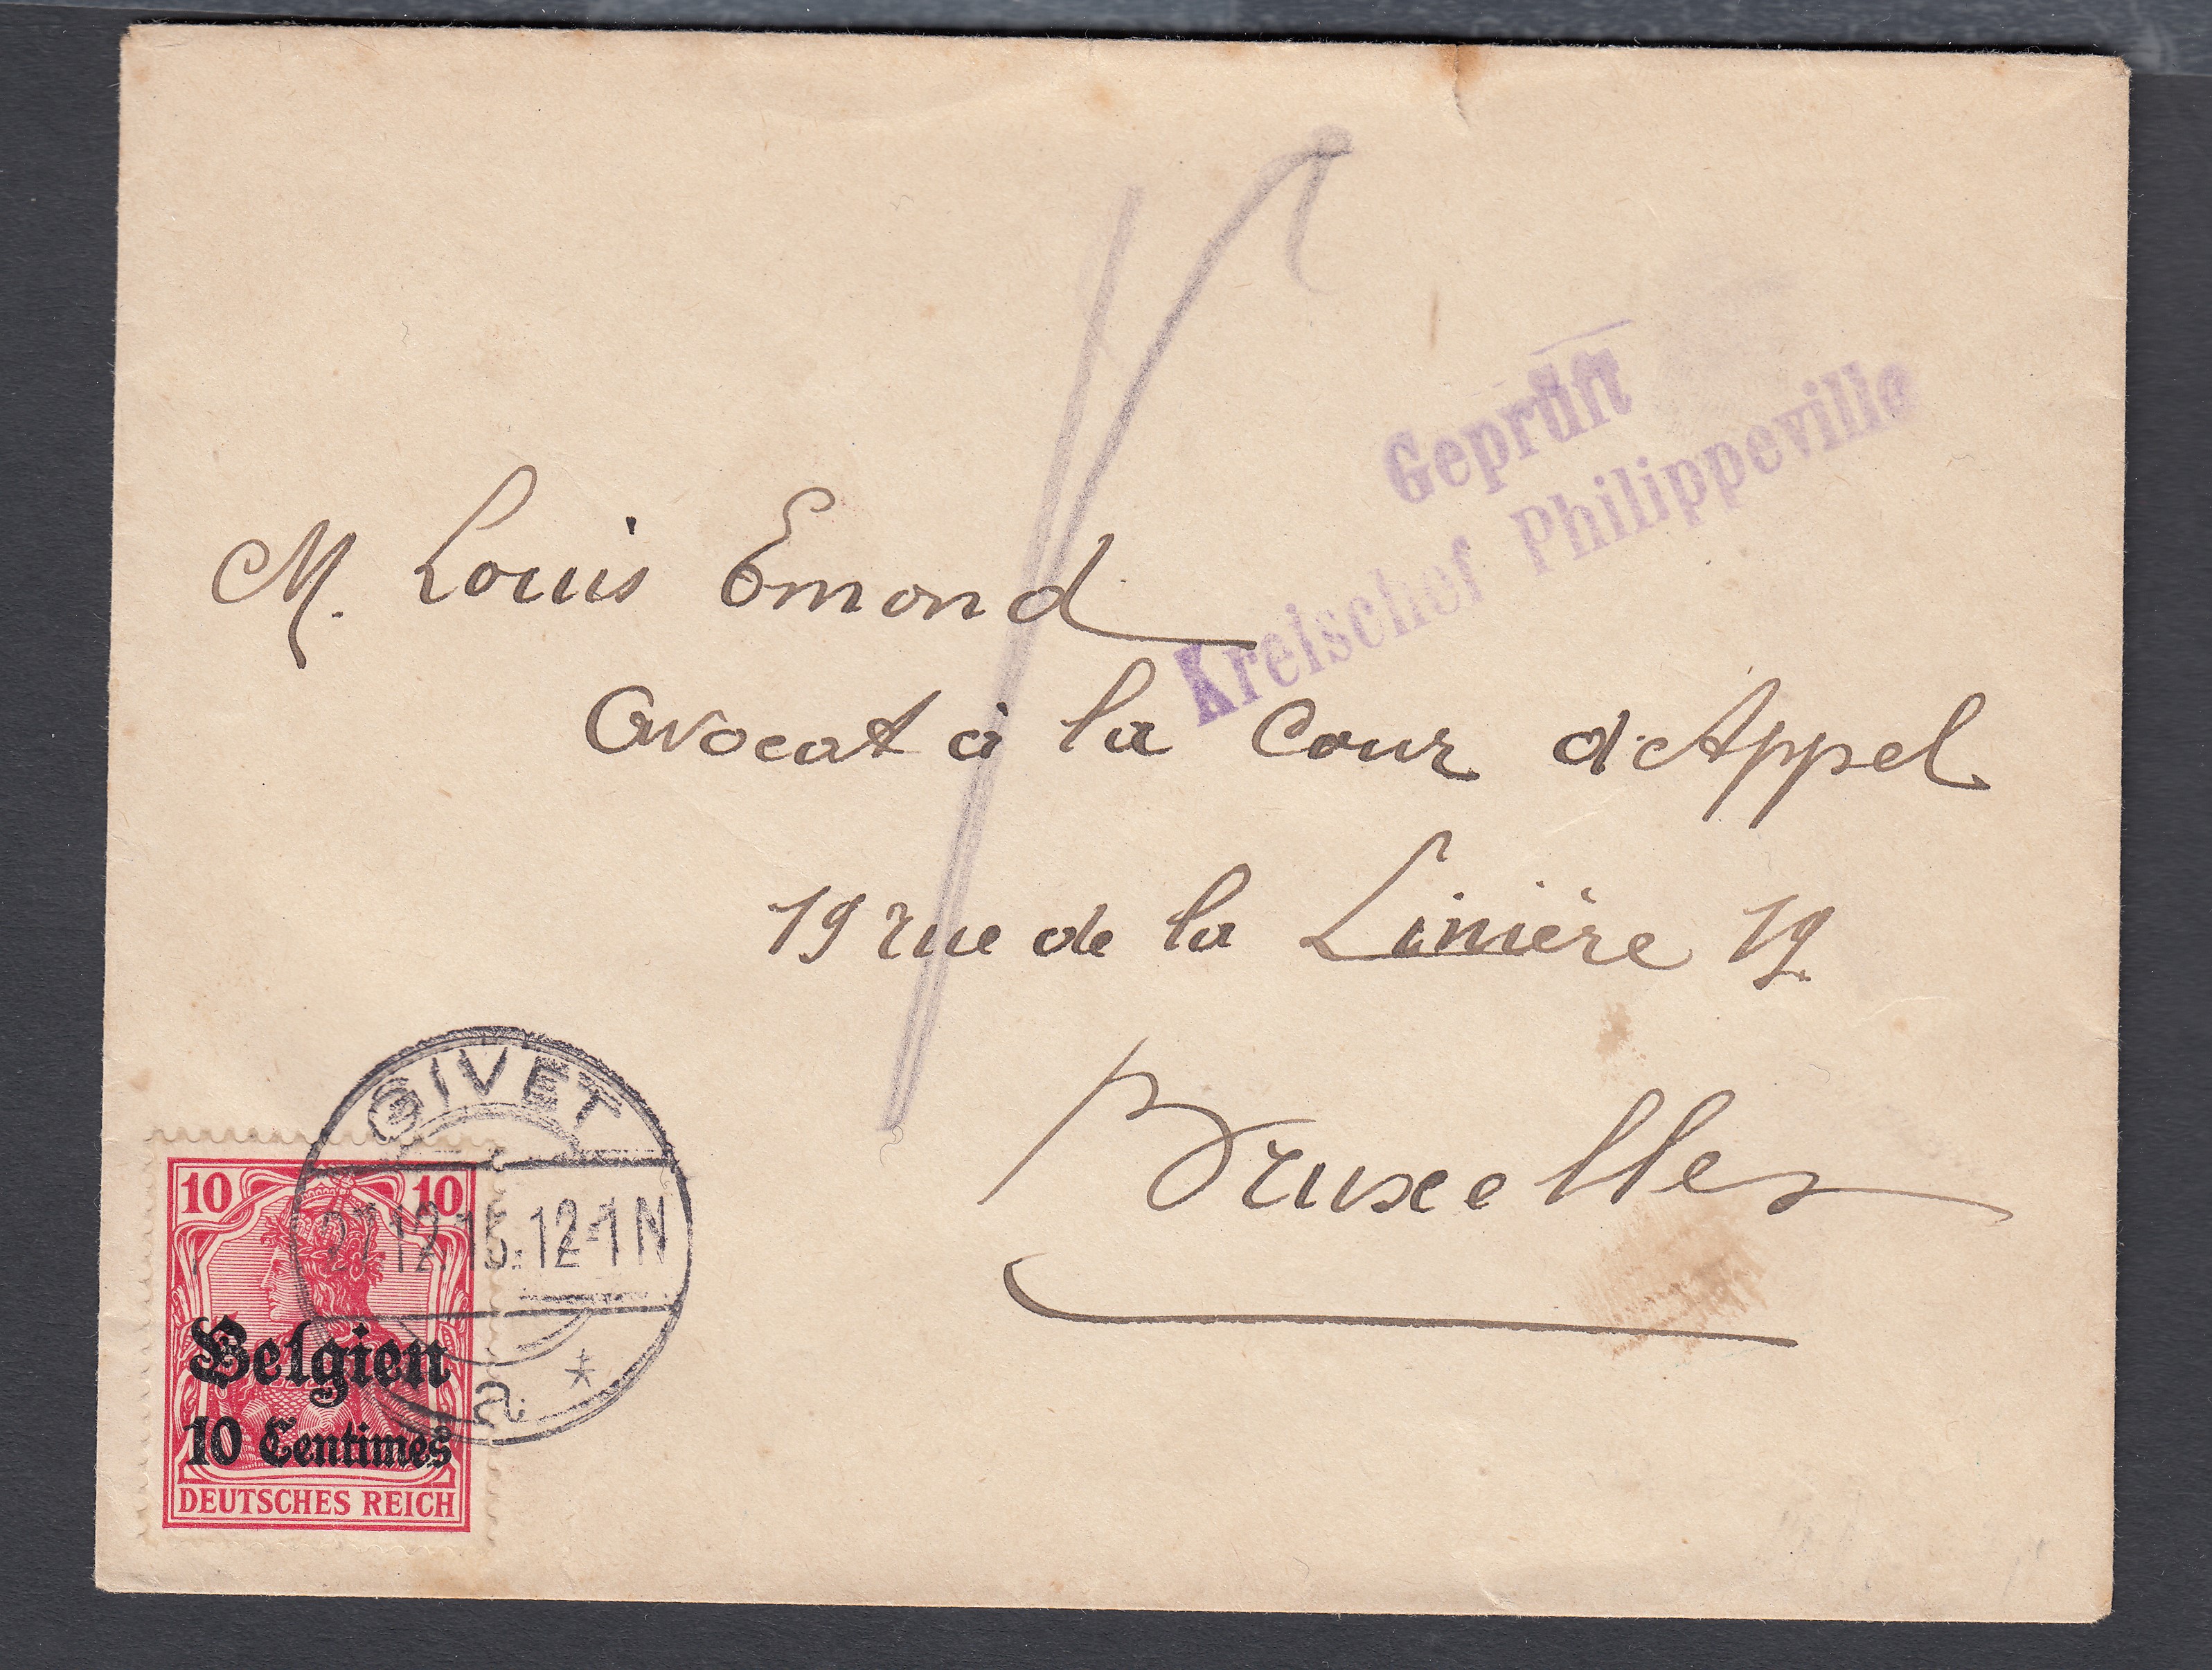 Geprüft
Kreischef Philippeville
M. Louis Emond
Avocat à la Cour d'Appel
19 rue de la Linière 19
Bruxelles
GIVET
27.12.15.12-1N
a *
10 10
Belgien
10 Centimes
DEUTSCHES REICH